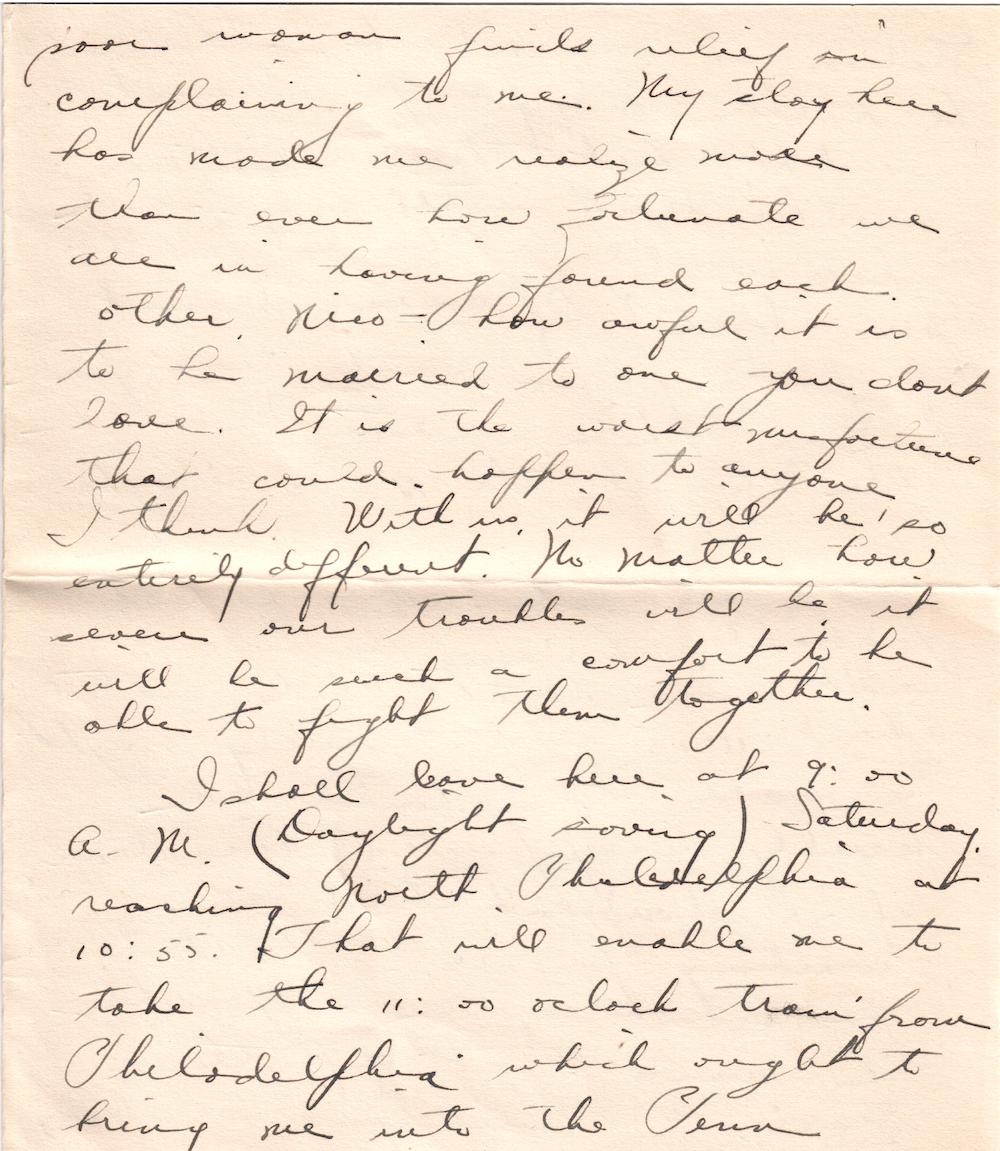 poor woman finds relief in
complaining to me. My stay here
has made me realize more
than ever how fortunate we
are in having found each
other, Nico - how awful it is
to be married to one you dont
love. It is the worst misfortune
that could happen to anyone
I think. With us, it will be so
entirely different. No matter how
severe our troubles will be it
will be such a comfort to be
able to fight them together.
I shall leave here at 9:00
A. M. (Daylight saving) Saturday
reaching North Philadelphia at
10:55. That will enable me to
take the 11:00 oclock train from
Philadelphia which ought to
bring me into the Penn